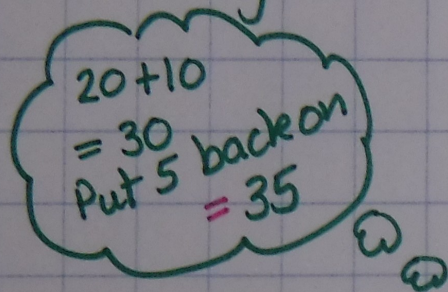 20+10
= 30
Put 5 back on
= 35